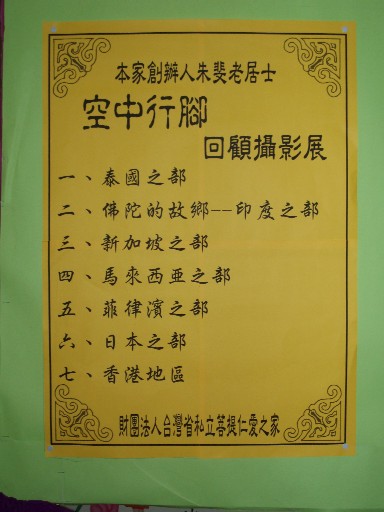 本家創辦人朱斐老居士
空中行腳
回顧攝影展
一、泰國之部
二、佛陀的故鄉--印度之部
三、新加坡之部
四、馬來西亞之部
五、菲律濱之部
六、日本之部
七、香港地區
財團法人台灣省私立菩提仁愛之家